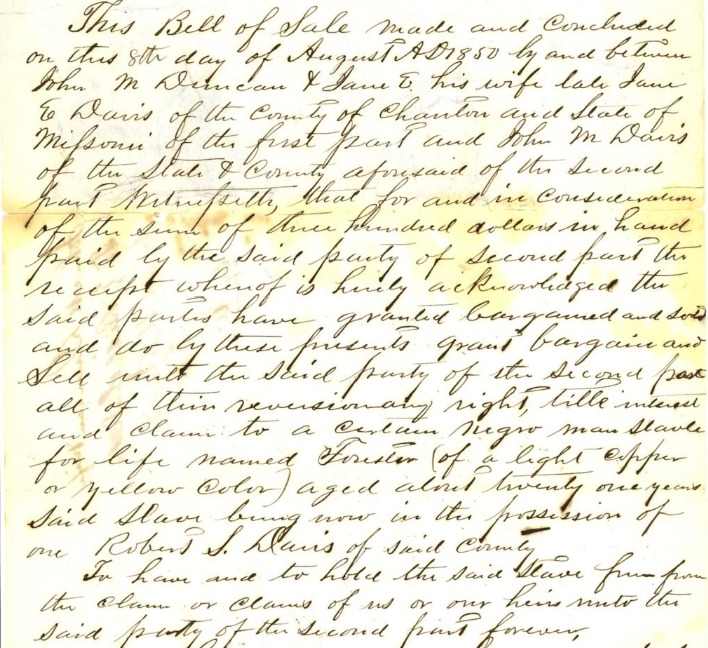 This Bell of Sale made and concluded
on this 8th day of August AD 1850 by and between
John M Duncan & Jane E. his wife late Jane
E Davis of the County of Chariton and State of
Missouri of the first part and John M Davis
of the State & County aforesaid of the second
part Witnesseth, that for and in consideration
of the sum of three hundred dollars in hand
paid by the said party of second part the
receipt whereof is hereby acknowledged the
said parties have granted bargained and sold
and do by these presents grant bargain and
Sell unto the said party of the second part
all of their reversionary right, title interest
and claim to a certain negro man slave
for life named Forester (of a light copper
or yellow color) aged about twenty one years
said slave being now in the possession of
one Robert S. Davis of said County
To have and to hold the said slave free from
the claim or claims of us or our heirs unto the
said party of the second part forever,